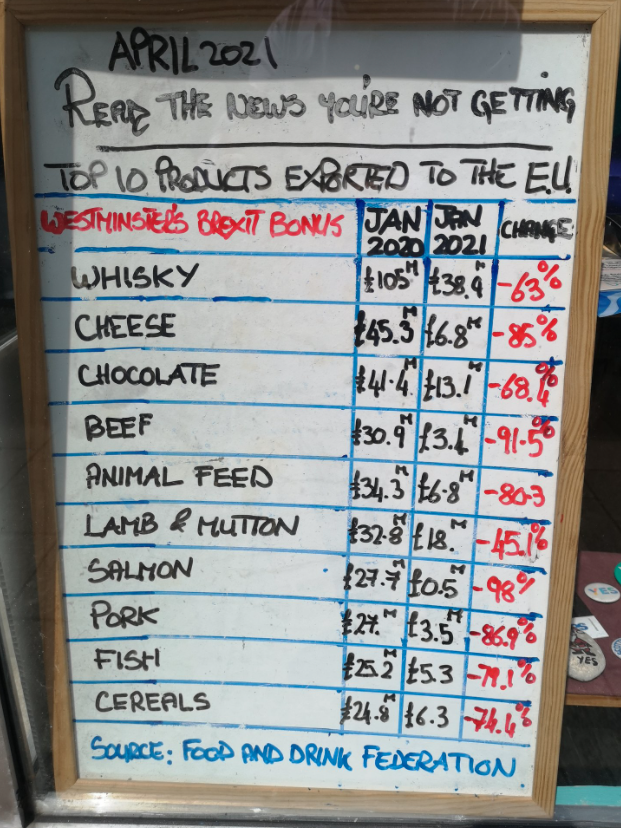 APRIL 2021
READ THE NEWS YOU'RE NOT GETTING
TOP 10 PRODUCTS EXPORTED TO THE E.U.
WESTMINSTER'S BREXIT BONUS JAN 2020 JAN 2021 CHANGE
WHISKY £105M £38.4M -63%
CHEESE £45.3M £6.8M -85%
CHOCOLATE £41.4M £13.1M -68.4%
BEEF £30.9M £3.4M -91.5%
ANIMAL FEED £34.3M £6.8M -80.3
LAMB & MUTTON £32.8M £18.M -45.1%
SALMON £27.7M £0.5M -98%
PORK £27.M £3.5M -86.9%
FISH £25.2M £5.3 -79.1%
CEREALS £24.8M £6.3 -74.4%
SOURCE: FOOD AND DRINK FEDERATION
YES
YES